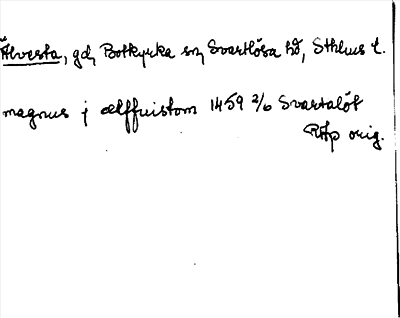 Älvesta, gd, Botkyrka sn, Svartlösa hd, Sthlms l.
magnus j ælffuistom 1459 2/6 Svartalöt
RAp orig.